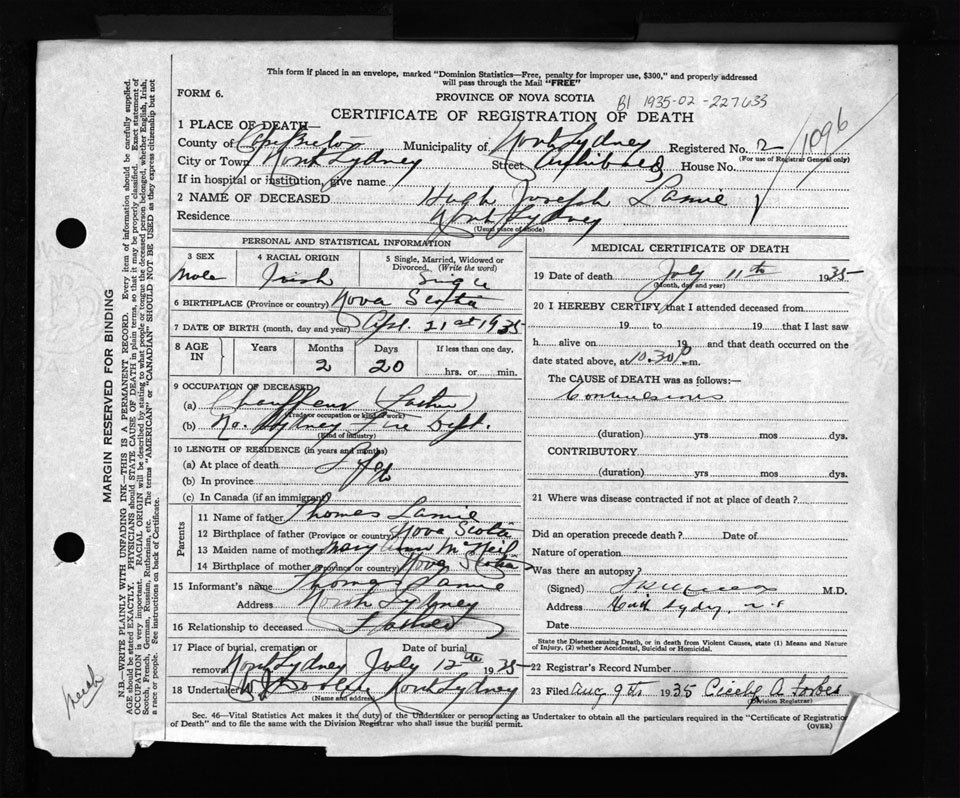 This form if placed in an envelope, marked "Dominion Statistics—Free, penalty for improper use, $300," and properly addressed
will pass through the Mail "FREE"
FORM 6.
PROVINCE OF NOVA SCOTIA
B1 1935-02-227633
CERTIFICATE OF REGISTRATION OF DEATH
1096
1 PLACE OF DEATH—
County of Cape Breton Municipality of North Sydney Registered No. 2
(For use of Registrar General only)
City or Town North Sydney Street Archibald House No.
If in hospital or institution, give name
2 NAME OF DECEASED Hugh Joseph Lamie
Residence North Sydney
(Usual place of abode)
PERSONAL AND STATISTICAL INFORMATION
3 SEX 4 RACIAL ORIGIN 5 Single, Married, Widowed or Divorced. (Write the word)
Male Irish Single
6 BIRTHPLACE (Province or country) Nova Scotia
7 DATE OF BIRTH (month, day and year) Apr. 21st 1935
8 AGE IN Years Months Days If less than one day.
2 20 hrs. or min.
9 OCCUPATION OF DECEASED
(a) Chauffeur (Father)
(Trade or occupation or kind of work)
(b) No. Sydney Fire Dept.
(Kind of industry)
10 LENGTH OF RESIDENCE (in years and months)
(a) At place of death Life
(b) In province
(c) In Canada (if an immigrant)
Parents
11 Name of father Thomas Lamie
12 Birthplace of father (Province or country) Nova Scotia
13 Maiden name of mother Mary Ann McNeil
14 Birthplace of mother (Province or country) Nova Scotia
15 Informant's name Thomas Lamie
Address North Sydney
16 Relationship to deceased Father
17 Place of burial, cremation or removal Date of burial
North Sydney July 12th 1935
18 Undertaker North Sydney
(Name and address)
MEDICAL CERTIFICATE OF DEATH
19 Date of death July 11th 1935
(Month, day and year)
20 I HEREBY CERTIFY that I attended deceased from
19 to 19 that I last saw
h alive on 19 and that death occurred on the
date stated above, at 10.30 p m.
The CAUSE of DEATH was as follows:—
Convulsions
(duration) yrs mos dys.
CONTRIBUTORY
(duration) yrs mos dys.
21 Where was disease contracted if not at place of death?
Did an operation precede death? Date of
Nature of operation
Was there an autopsy?
(Signed) M.D.
Address North Sydney, N.S
Date
State the Disease causing Death, or in death from Violent Causes, state (1) Means and Nature
of Injury, (2) whether Accidental, Suicidal or Homicidal.
22 Registrar's Record Number
23 Filed Aug 9th 1935 Cicely A Forbes
(Division Registrar)
Sec. 46—Vital Statistics Act makes it the duty of the Undertaker or person acting as Undertaker to obtain all the particulars required in the "Certificate of Registration
of Death" and to file the same with the Division Registrar who shall issue the burial permit.
(OVER)
MARGIN RESERVED FOR BINDING
N.B.—WRITE PLAINLY WITH UNFADING INK—THIS IS A PERMANENT RECORD. Every item of information should be carefully supplied.
AGE should be stated EXACTLY. PHYSICIANS should STATE CAUSE OF DEATH in plain terms, so that it may be properly classified. Exact statement of
OCCUPATION is very important. RACIAL ORIGIN will be described by stating to what people or tongue the deceased person belonged, whether English, Irish,
Scotch, French, German, Russian, Ruthenian, etc. The terms "AMERICAN" or "CANADIAN" SHOULD NOT BE USED as they express citizenship but not
a race or people. See instructions on back of Certificate.